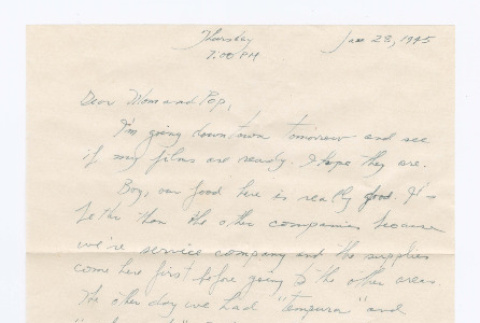 Thursday
7:00 PM
Jan 23, 1945
Dear Mom and Pop,
I'm going downtown tomorrow and see
if my films are ready. I hope they are.
Boy, our food here is really good. It's
better than the other companies because
we're service company and the supplies
come here first before going to the other areas.
The other day we had "tempura" and